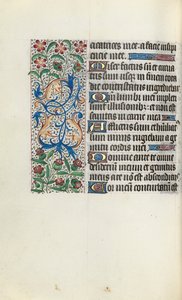 cicatrices mee: a facie insipi
encie mee.
Miser factus sum et curua
tus sum usq; in finem tota
die contristatus ingrediebar
Qm lumbi mei impleti
sunt illusionibus: et non est
sanitas in carne mea.
Afflictus sum et humilia
tus sum nimis rugiebam a ge
mitu cordis mei.
Domine ante te omne
desiderium meum et gemitus
meus a te no est absconditus
Cor meum conturbatu est